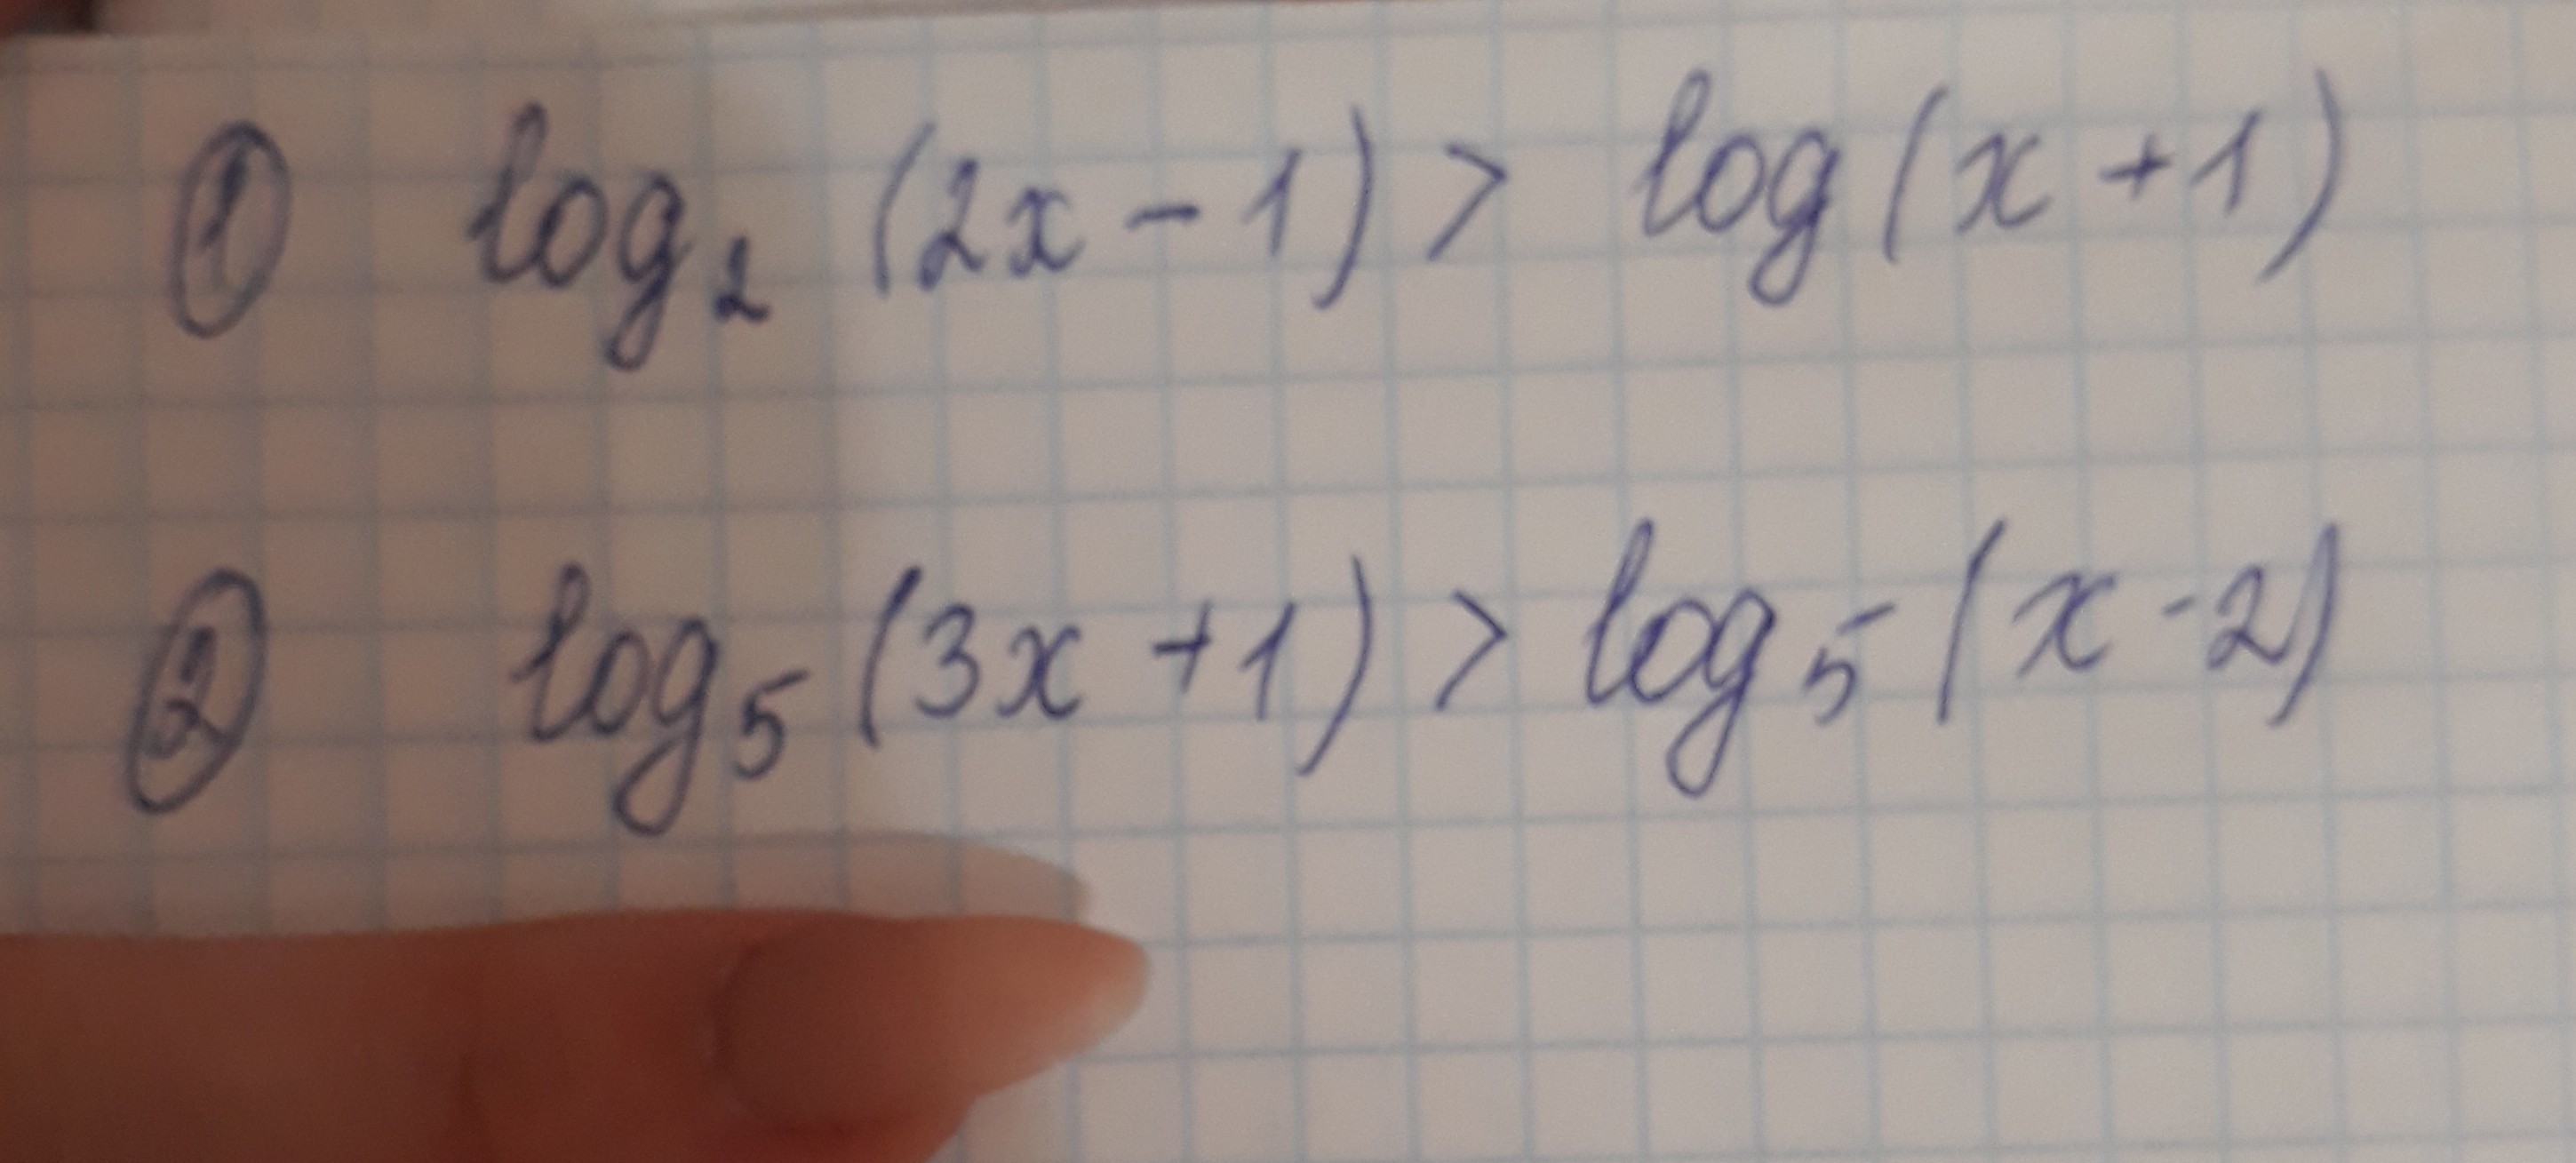 ① log₂ (2x - 1) > log (x + 1)
② log₅ (3x + 1) > log₅ (x - 2)